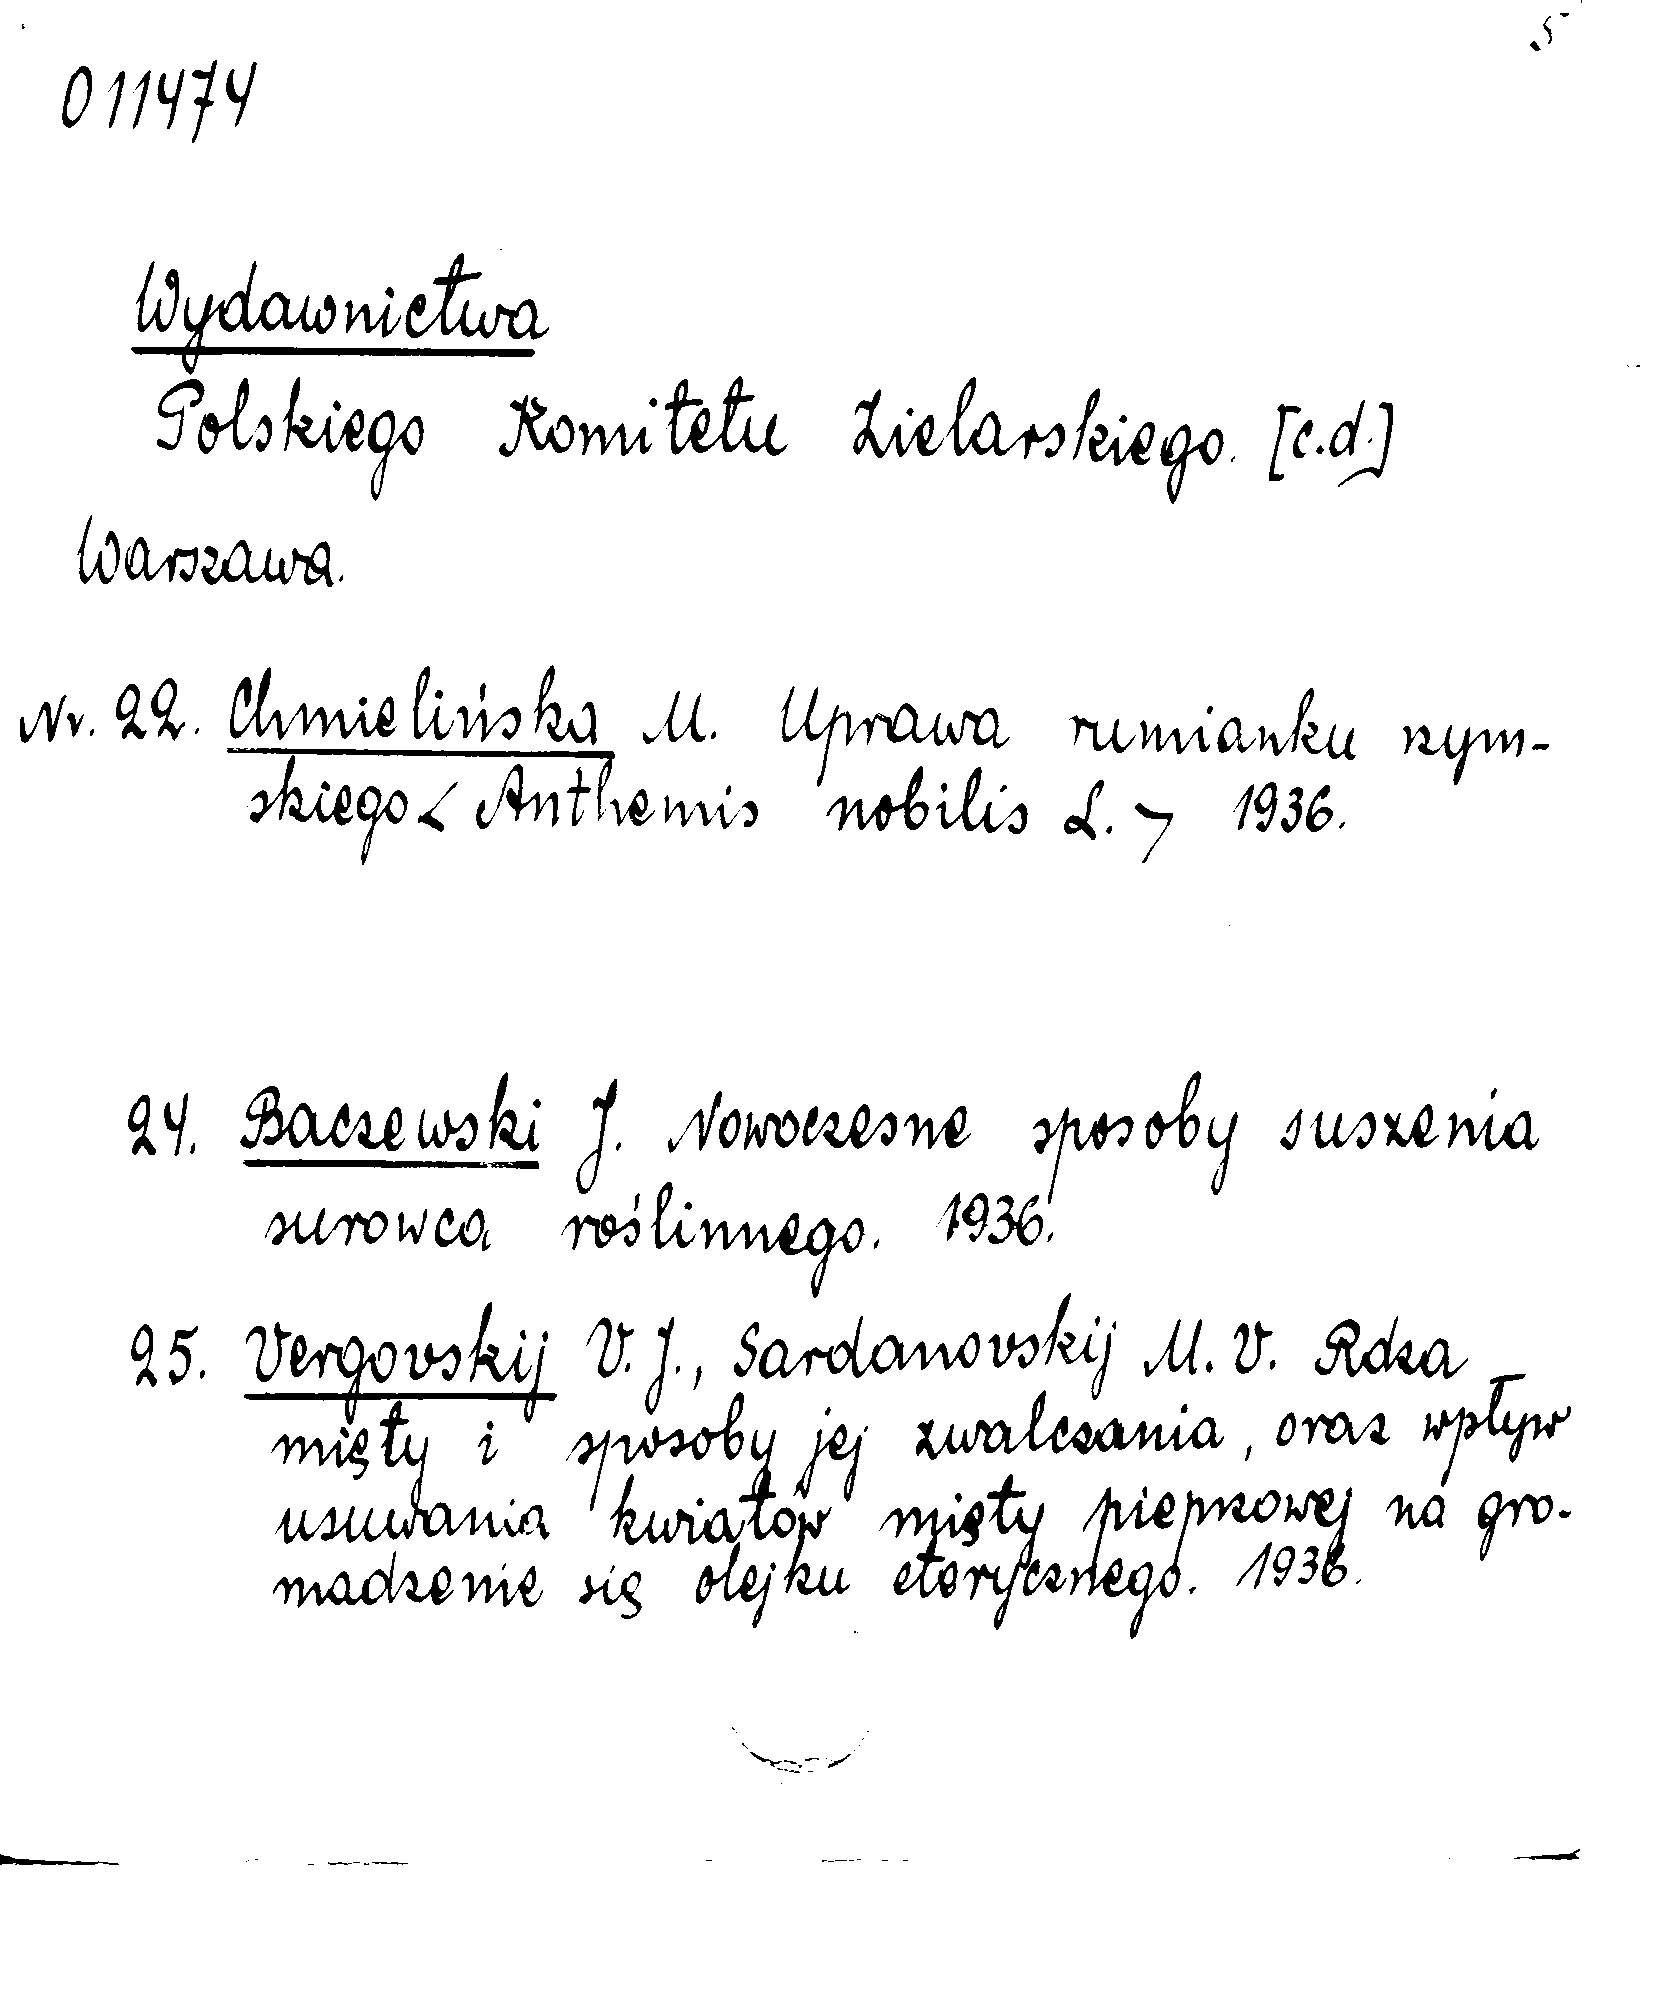 5
011474
Wydawnictwa
Polskiego Komitetu Zielarskiego. [c.d.]
Warszawa.
Nr. 22. Chmielińska M. Uprawa rumianku rzym-
skiego < Anthemis nobilis L. > 1936.
24. Baczewski J. Nowoczesne sposoby suszenia
surowca roślinnego. 1936.
25. Vergovskij V. J., Sardanovskij M. V. Rdza
mięty i sposoby jej zwalczania, oraz wpływ
usuwania kwiatów mięty pieprzowej na gro-
madzenie się olejku eterycznego. 1936.